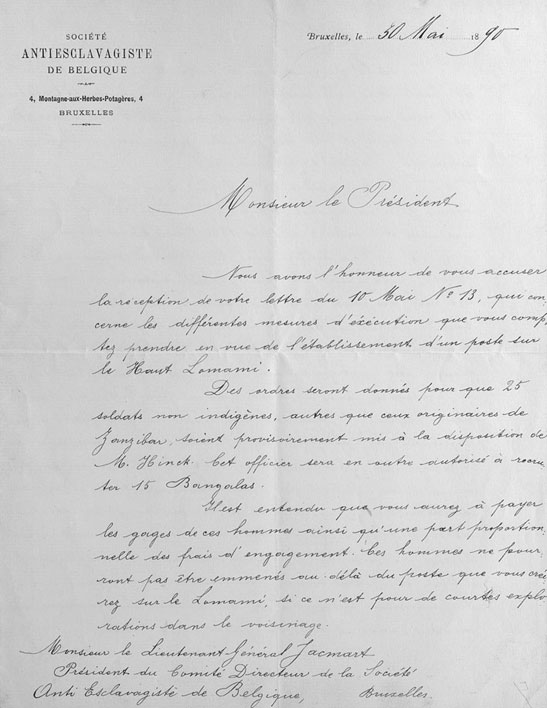 SOCIÉTÉ
ANTIESCLAVAGISTE
DE BELGIQUE
4, Montagne-aux-Herbes-Potagères, 4
BRUXELLES
Bruxelles, le 30 Mai 1890
Monsieur le Président
Nous avons l'honneur de vous accuser
la réception de votre lettre du 10 Mai No 13, qui con
cerne les différentes mesures d'éxécution que vous comp
tez prendre en vue de l'établissement d'un poste sur
le Haut Lomami.
Des ordres seront donnés pour que 25
soldats non indigènes, autres que ceux originaires de
Zanzibar, soient provisoirement mis à la disposition de
M. Hinck. Cet officier sera en outre autorisé à recru
ter 15 Bangalas.
Il est entendu que vous aurez à payer
les gages de ces hommes ainsi qu'une part proportion
nelle des frais d'engagement. Ces hommes ne pour
ront pas être emmenés au-délà du poste que vous crée
rez sur le Lomami, si ce n'est pour de courtes explo
rations dans le voisinage.
Monsieur le Lieutenant Général Jacmart
Président du Comité Directeur de la Société
Anti Esclavagiste de Belgique, Bruxelles.